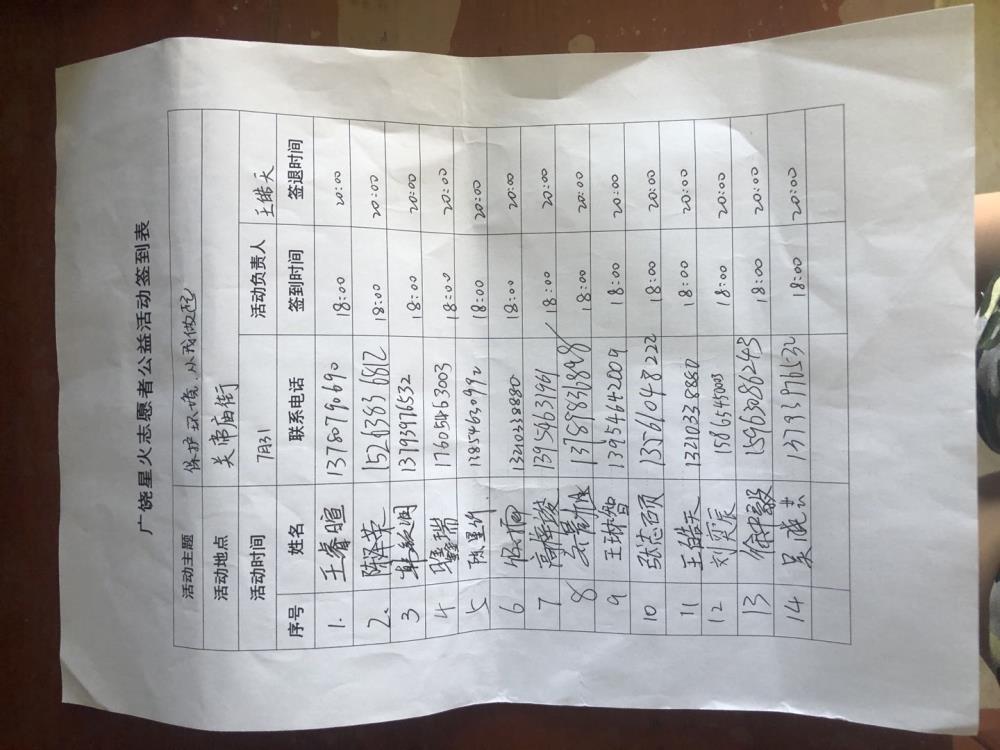 广饶星火志愿者公益活动签到表
活动主题 保护环境，从我做起
活动地点 关帝庙街
活动时间 7月31 活动负责人 王皓天
序号 姓名 联系电话 签到时间 签退时间
1. 王睿暄 13780790690 18:00 20:00
2. 陈泽荣 18:00 20:00
3 韩敏润 13793976532 18:00 20:00
4 瑞 17605463003 18:00 20:00
5 陈星竹 18:00 20:00
6 13210338880 18:00 20:00
7 13954631961 18:00 20:00
8 18:00 20:00
9 王琳智 13956642009 18:00 20:00
10 张志硕 13561048222 18:00 20:00
11 王皓天 13210338880 18:00 20:00
12 刘奕辰 15865450003 18:00 20:00
13 15963086243 18:00 20:00
14 吴晓芸 13793976532 18:00 20:00